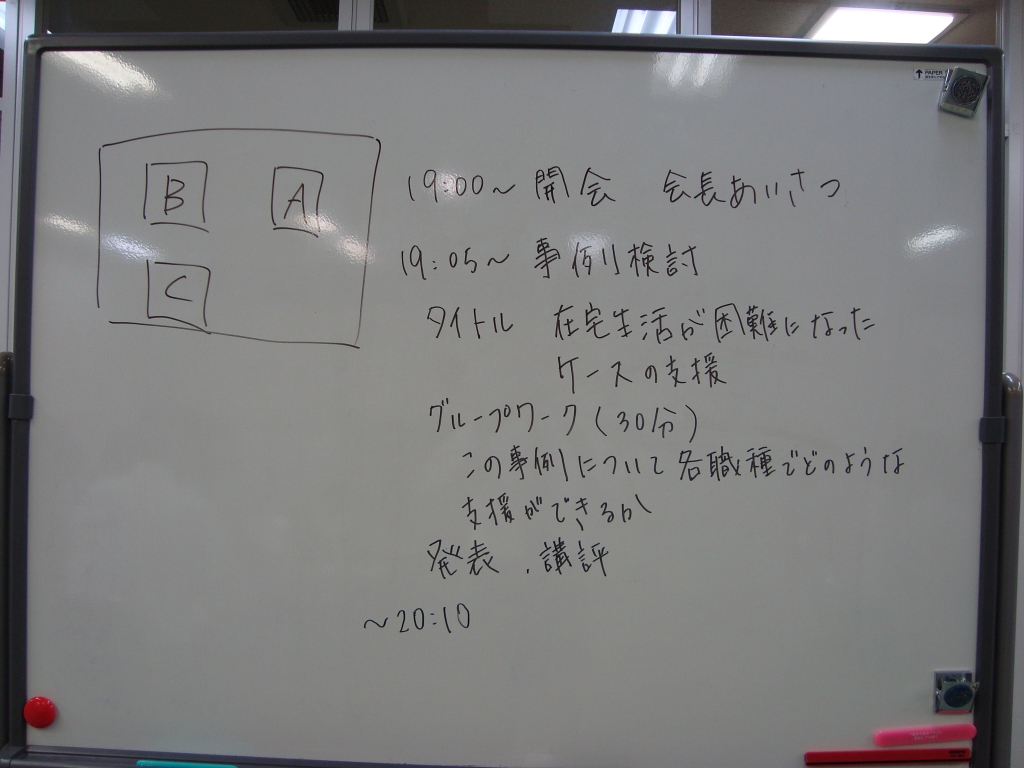 B
A
C
19:00～ 開会 会長あいさつ
19:05～ 事例検討
タイトル 在宅生活が困難になった
ケースの支援
グループワーク(30分)
この事例について各職種でどのような
支援ができるか
発表、講評
～20:10
↑ PAPER